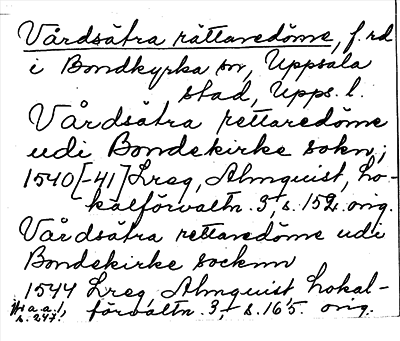 Vårdsätra rättaredöme, f. rd
i Bondkyrka sn, Uppsala
stad, Upps. l.
Vårdsätra rettaredöme
udi Bondekirke sokn;
1540[-41] Lreg, Almquist, Lo-
kalförvaltn. 3, s. 152. orig.
Vårdsätra rettaredöme udi
Bondekirke socknn
1544 Lreg, Almquist, Lokal-
förvaltn. 3, s. 165. orig.
a.a.1,
s. 247.